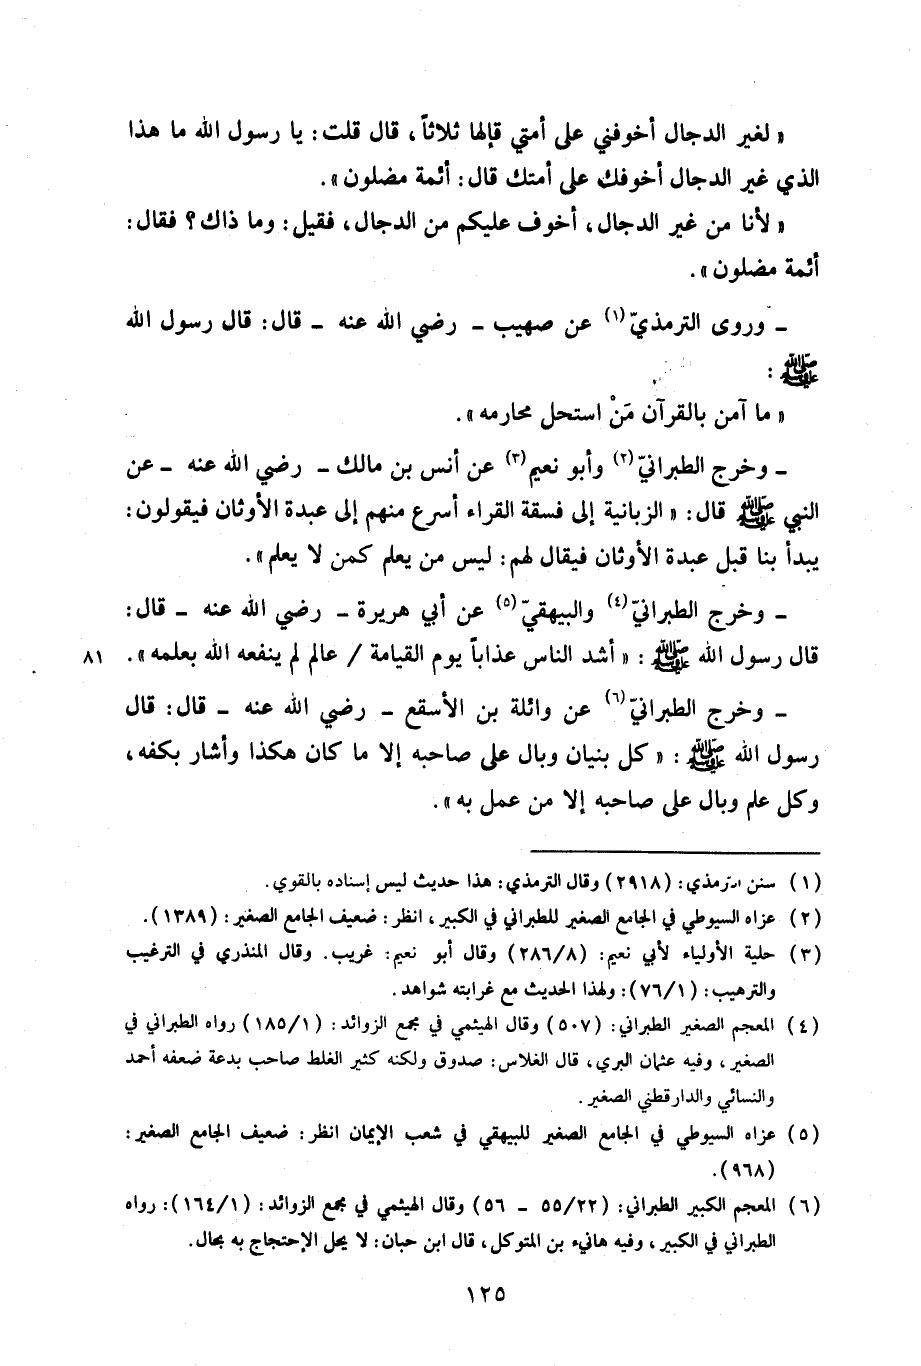 « لغير الدجال أخوفني على أمتي قالها ثلاثاً، قال قلت: يا رسول الله ما هذا
الذي غير الدجال أخوفك على أمتك قال: أئمة مضلون».
« لأنا من غير الدجال، أخوف عليكم من الدجال، فقيل: وما ذاك؟ فقال:
أئمة مضلون».
ـ وروى الترمذيّ(١) عن صهيب ـ رضي الله عنه ـ قال: قال رسول الله
ﷺ :
« ما آمن بالقرآن مَنْ استحل محارمه».
ـ وخرج الطبرانيّ(٢) وأبو نعيم(٣) عن أنس بن مالك ـ رضي الله عنه ـ عن
النبي ﷺ قال: « الزبانية إلى فسقة القراء أسرع منهم إلى عبدة الأوثان فيقولون:
يبدأ بنا قبل عبدة الأوثان فيقال لهم: ليس من يعلم كمن لا يعلم».
ـ وخرج الطبرانيّ(٤) والبيهقيّ(٥) عن أبي هريرة ـ رضي الله عنه ـ قال:
قال رسول الله ﷺ : « أشد الناس عذاباً يوم القيامة / عالم لم ينفعه الله بعلمه». ٨١
ـ وخرج الطبرانيّ(٦) عن واثلة بن الأسقع ـ رضي الله عنه ـ قال: قال
رسول الله ﷺ : « كل بنيان وبال على صاحبه إلا ما كان هكذا وأشار بكفه،
وكل علم وبال على صاحبه إلا من عمل به».
(١) سنن الترمذي: (٢٩١٨) وقال الترمذي: هذا حديث ليس إسناده بالقوي.
(٢) عزاه السيوطي في الجامع الصغير للطبراني في الكبير، انظر: ضعيف الجامع الصغير: (١٣٨٩).
(٣) حلية الأولياء لأبي نعيم: (٢٨٦/٨) وقال أبو نعيم: غريب. وقال المنذري في الترغيب
والترهيب: (٧٦/١): ولهذا الحديث مع غرابته شواهد.
(٤) المعجم الصغير الطبراني: (٥٠٧) وقال الهيثمي في مجمع الزوائد: (١٨٥/١) رواه الطبراني في
الصغير، وفيه عثمان البري، قال الغلاس: صدوق ولكنه كثير الغلط صاحب بدعة ضعفه أحمد
والنسائي والدارقطني الصغير.
(٥) عزاه السيوطي في الجامع الصغير للبيهقي في شعب الإيمان انظر: ضعيف الجامع الصغير:
(٩٦٨).
(٦) المعجم الكبير الطبراني: (٥٥/٢٢ ـ ٥٦) وقال الهيثمي في مجمع الزوائد: (١٦٤/١): رواه
الطبراني في الكبير، وفيه هانيء بن المتوكل، قال ابن حبان: لا يحل الإحتجاج به بحال.
١٢٥